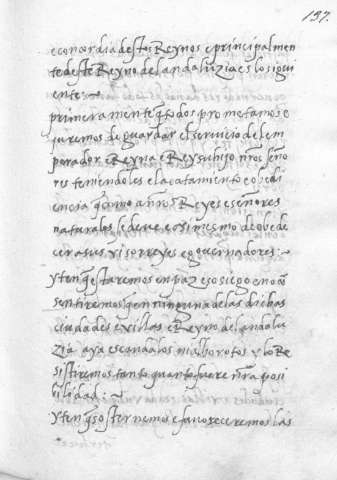 137.
e concordia destos Reynos e principalmen
te deste Reyno del andaluzia es lo sigui
ente:
primeramente q̃ todos prometamos e
juremos de guardar el servicio del em
perador e Reyna e Rey su hijo nr̃os seño
res teniendoles el acatamiento e obedi
encia q̃ como a nr̃os Reyes e señores
naturales se deve e asimesmo de obede
cer a sus visorreyes e governadores:
yten q̃ estaremos en paz e sosiego e no con
sentiremos q̃ en ninguna de las dichas
ciudades e villas e Reyno del andalu
zia aya escandalos ni alborotos y lo Re
sistiremos tanto quanto fuere nr̃a posi
bilidad:
yten q̃ sosternemos e favoreceremos las